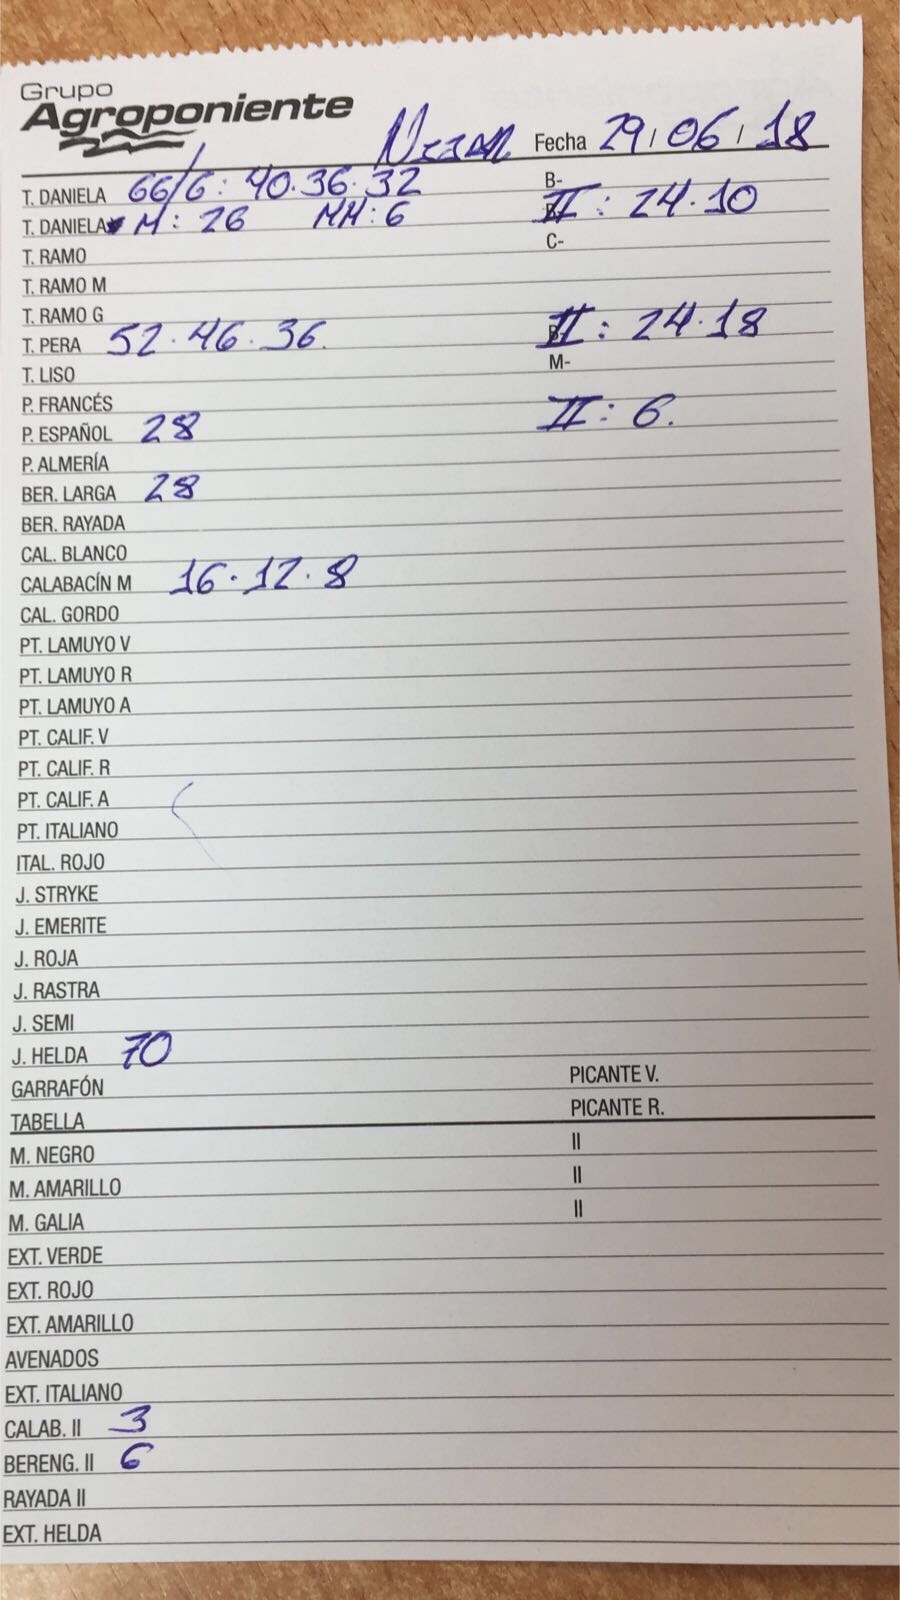 Grupo
Agroponiente
Fecha 29/06/18
T. DANIELA 66/6: 40.36.32 B-
T. DANIELA M: 26 MM: 6 II: 24.10
T. RAMO C-
T. RAMO M
T. RAMO G
T. PERA 52.46.36. II: 24.18
T. LISO M-
P. FRANCÉS
P. ESPAÑOL 28 II: 6.
P. ALMERÍA
BER. LARGA 28
BER. RAYADA
CAL. BLANCO
CALABACÍN M 16.12.8
CAL. GORDO
PT. LAMUYO V
PT. LAMUYO R
PT. LAMUYO A
PT. CALIF. V
PT. CALIF. R
PT. CALIF. A
PT. ITALIANO
ITAL. ROJO
J. STRYKE
J. EMERITE
J. ROJA
J. RASTRA
J. SEMI
J. HELDA 70
GARRAFÓN PICANTE V.
TABELLA PICANTE R.
M. NEGRO II
M. AMARILLO II
M. GALIA II
EXT. VERDE
EXT. ROJO
EXT. AMARILLO
AVENADOS
EXT. ITALIANO
CALAB. II 3
BERENG. II 6
RAYADA II
EXT. HELDA